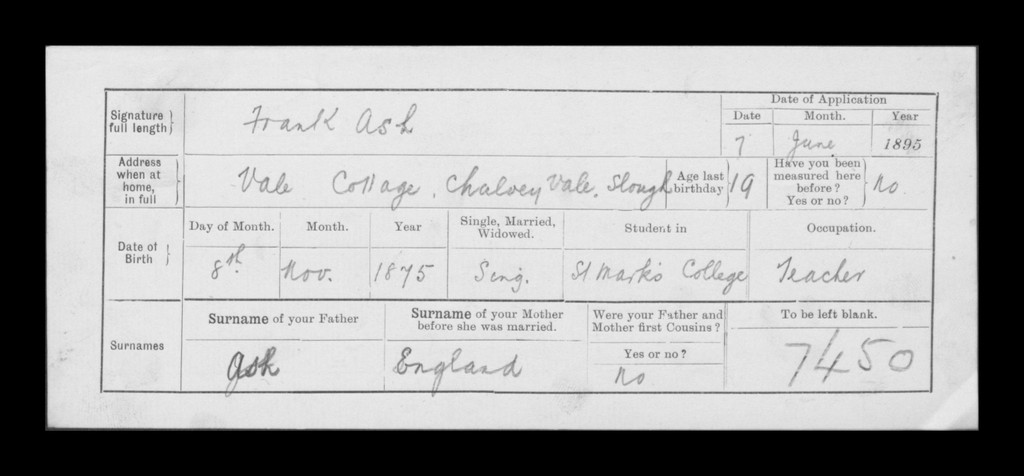 Signature full length} Frank Ash
Date of Application
Date Month. Year
7 June 1895
Address when at home, in full} Vale Cottage, Chalvey Vale, Slough
Age last birthday} 19
Have you been measured here before? Yes or no?} no
Date of Birth}
Day of Month. Month. Year Single, Married, Widowed. Student in Occupation.
8th Nov. 1875 Sing. St Mark's College Teacher
Surnames
Surname of your Father Surname of your Mother before she was married. Were your Father and Mother first Cousins? Yes or no? To be left blank.
Ash England no 7450